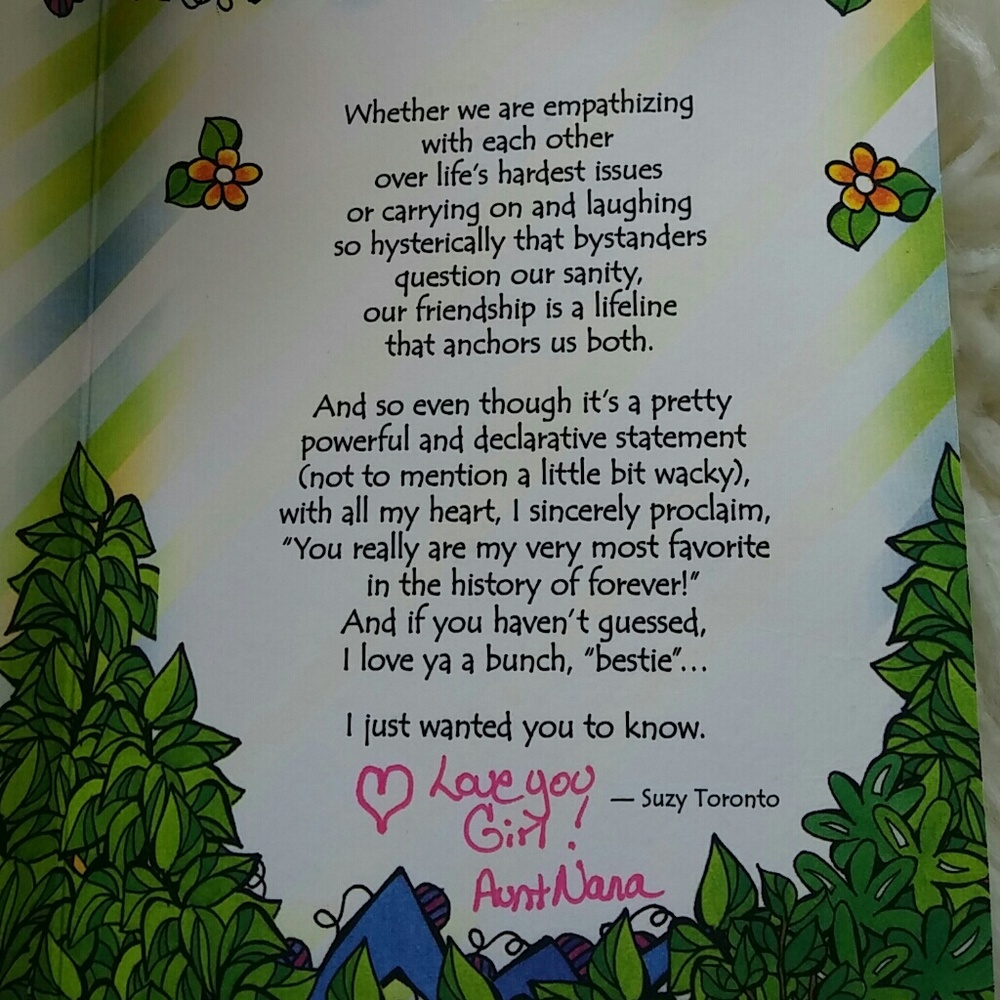 Whether we are empathizing
with each other
over life's hardest issues
or carrying on and laughing
so hysterically that bystanders
question our sanity,
our friendship is a lifeline
that anchors us both.
And so even though it's a pretty
powerful and declarative statement
(not to mention a little bit wacky),
with all my heart, I sincerely proclaim,
"You really are my very most favorite
in the history of forever!"
And if you haven't guessed,
I love ya a bunch, "bestie"...
I just wanted you to know.
Love you
— Suzy Toronto
Girl!
Aunt Nana